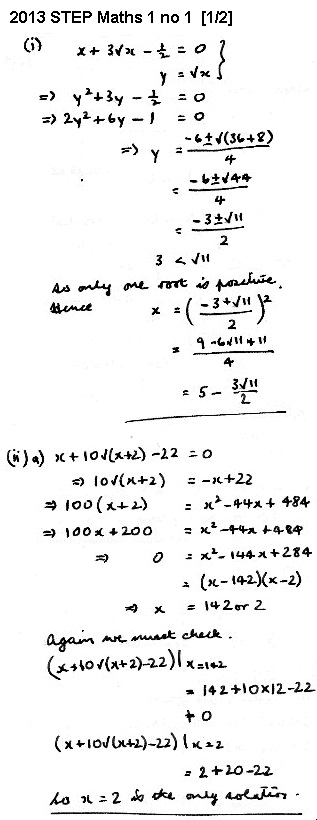 2013 STEP Maths 1 no 1 [1/2]
(i) x + 3√x - ½ = 0 }
y = √x
=> y² + 3y - ½ = 0
=> 2y² + 6y - 1 = 0
=> y = (-6 ± √(36+8))/4
= (-6 ± √44)/4
= (-3 ± √11)/2
3 < √11
So only one root is positive.
Hence x = ((-3 + √11)/2)²
= (9 - 6√11 + 11)/4
= 5 - 3√11/2
(ii) a) x + 10√(x+2) - 22 = 0
=> 10√(x+2) = -x + 22
=> 100(x+2) = x² - 44x + 484
=> 100x + 200 = x² - 44x + 484
=> 0 = x² - 144x + 284
= (x - 142)(x - 2)
=> x = 142 or 2
Again we must check.
(x + 10√(x+2) - 22)|x=142
= 142 + 10×12 - 22
≠ 0
(x + 10√(x+2) - 22)|x=2
= 2 + 20 - 22
So x = 2 is the only solution.